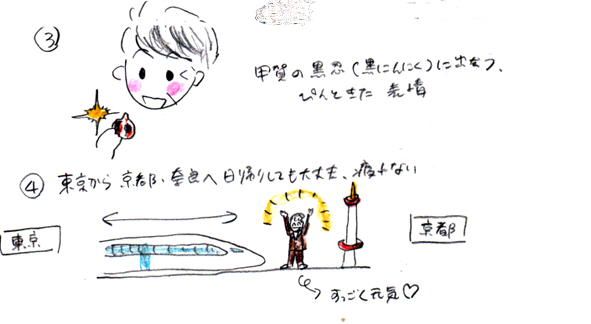 ③
甲賀の黒忍(黒にんにく)に出会う、
ぴんときた 表情
④ 東京から京都・奈良へ日帰りしても大丈夫、疲れない
東京
京都
すっごく元気♡